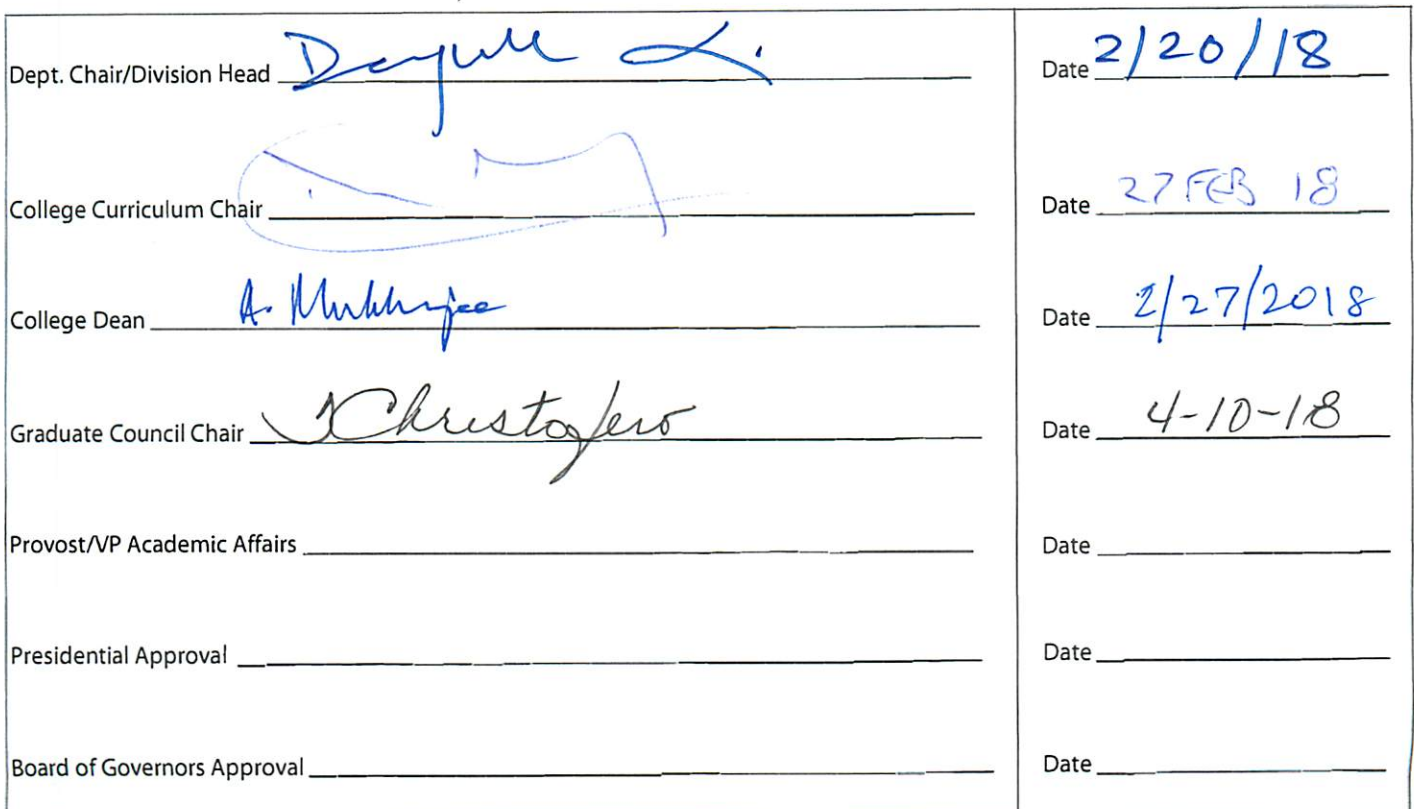 Dept. Chair/Division Head Date 2/20/18
College Curriculum Chair Date 27 FEB 18
College Dean A. Mukherjee Date 2/27/2018
Graduate Council Chair Christofero Date 4-10-18
Provost/VP Academic Affairs Date
Presidential Approval Date
Board of Governors Approval Date